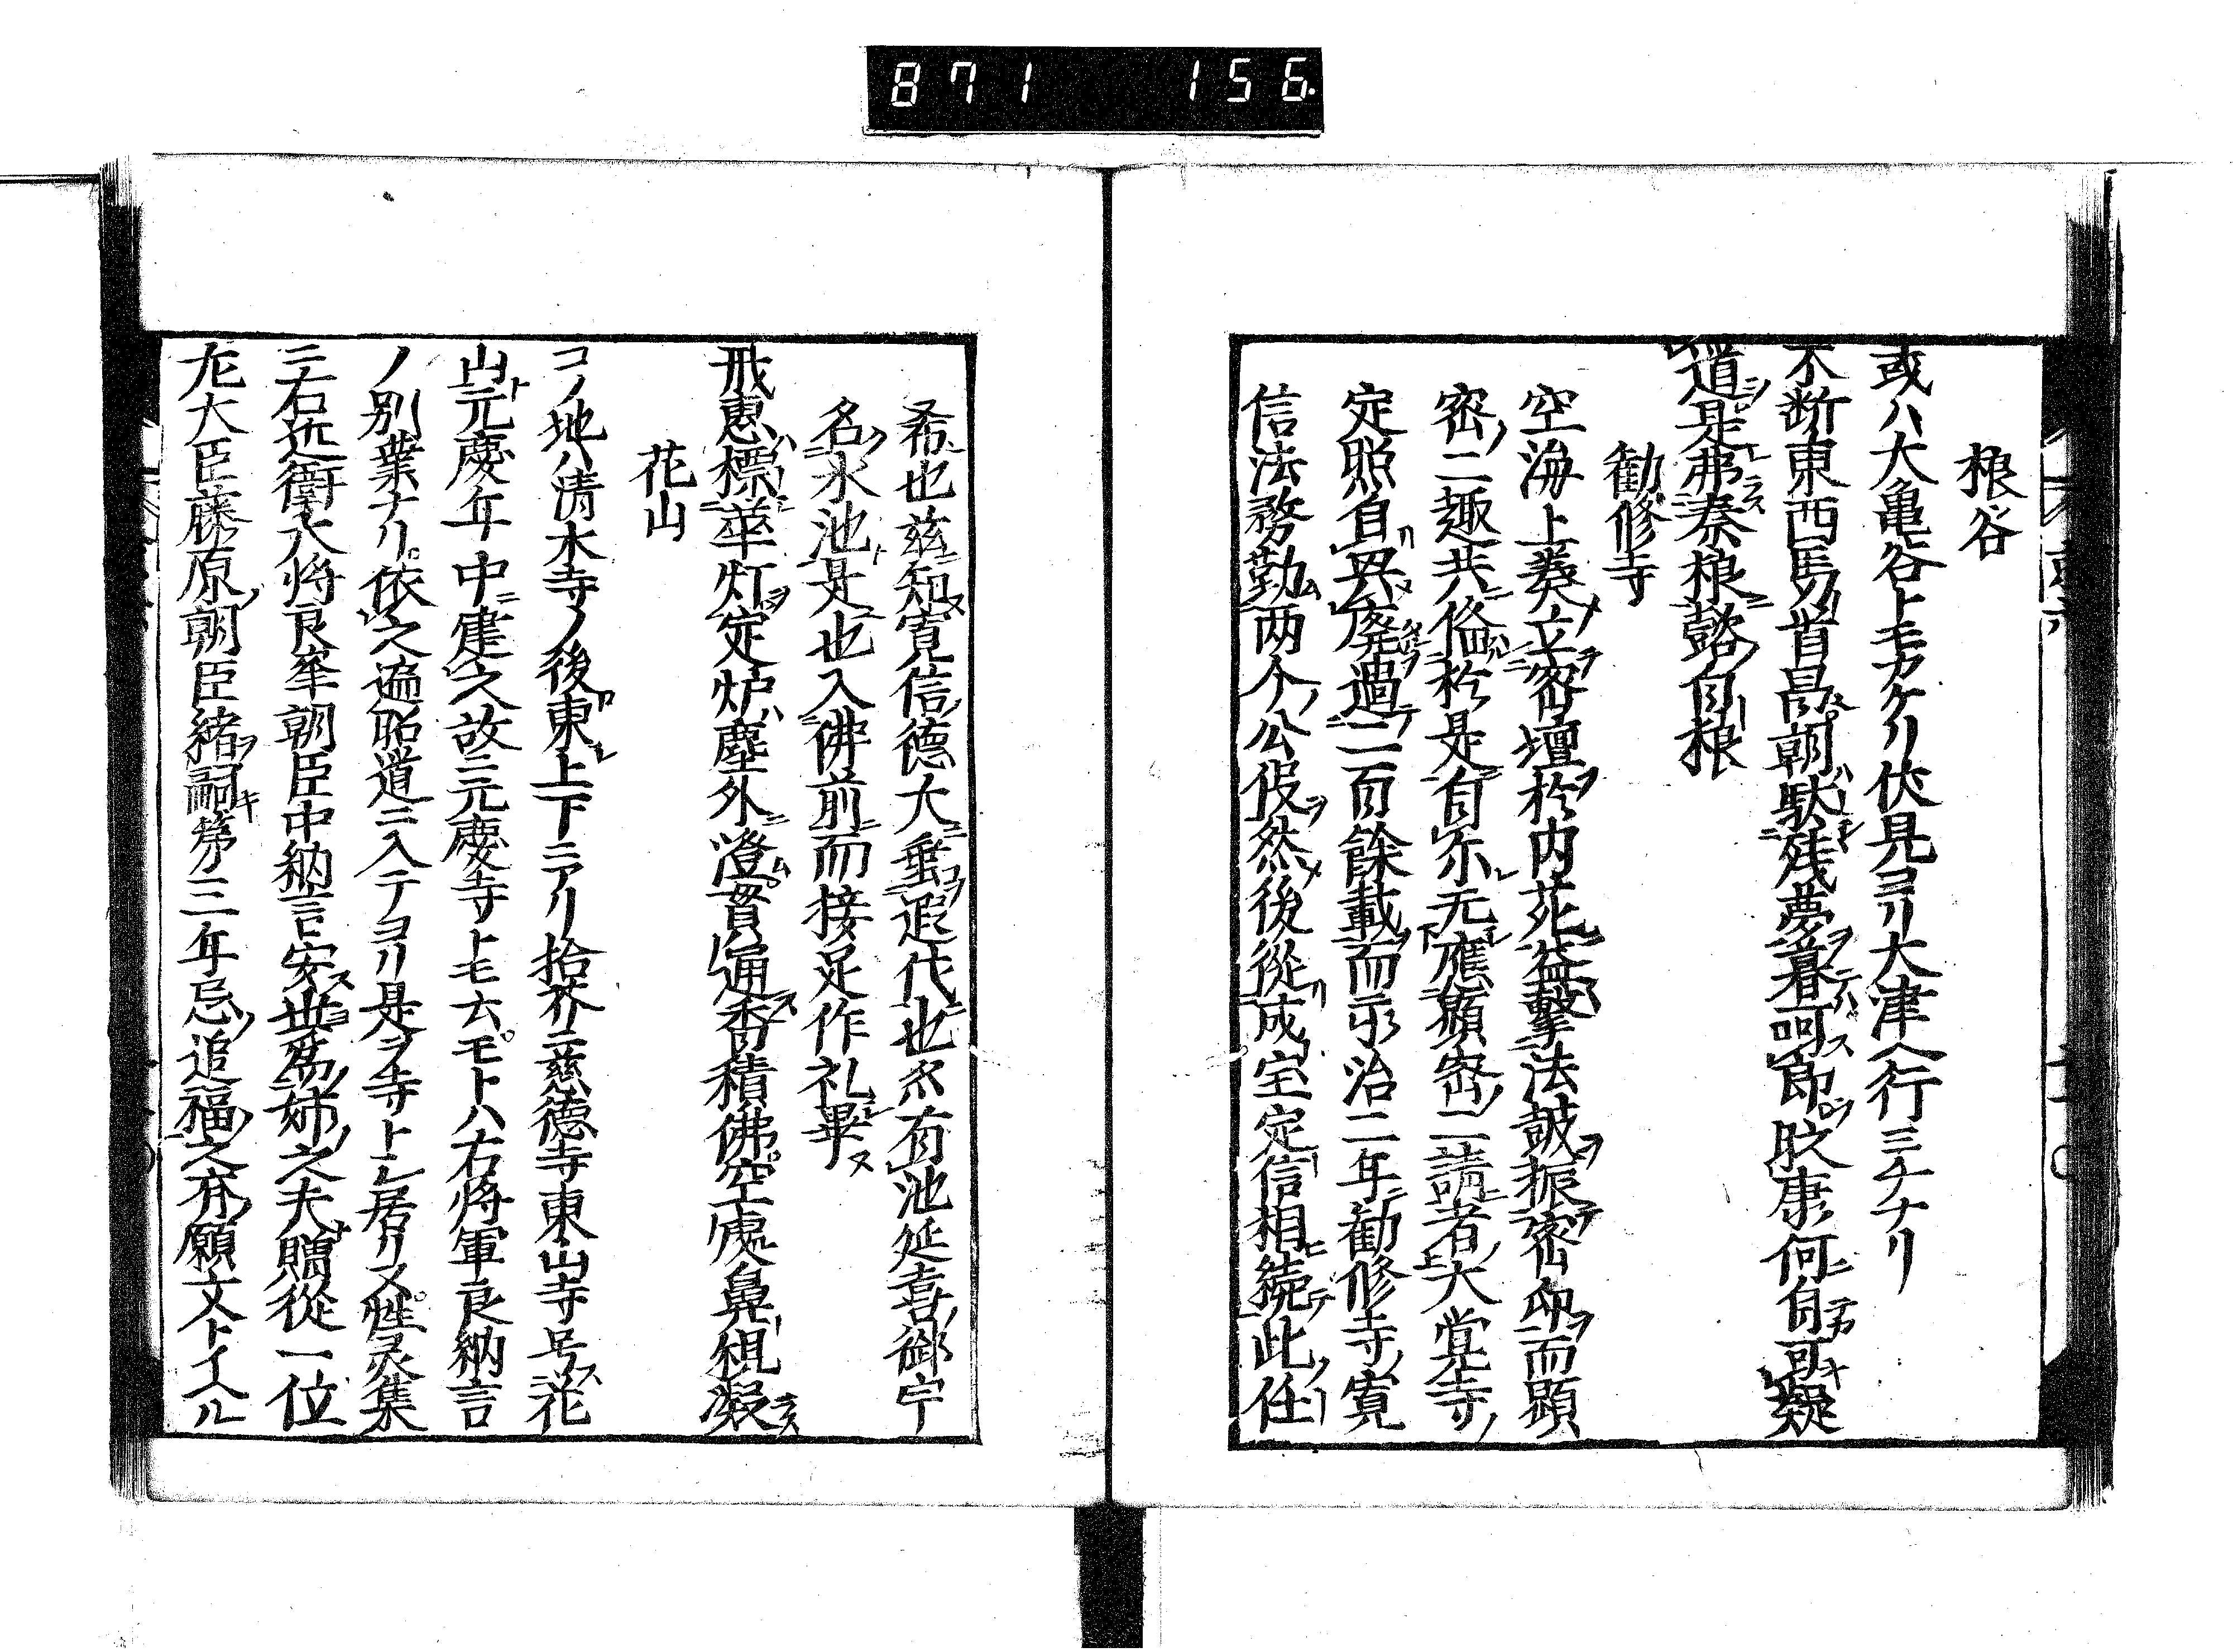 871 156.
狼谷
或ハ大亀谷トモカケリ伏見ヨリ大津ヘ行ミチナリ
不断東西馬首昂朝駄残夢暮呵郎
道是弗奏狼鼓自狼
勧修寺
空海上奏立密壇於内苑益撃法鼓振密印而顕
密二趣共倫於是自尓元応顕密二請者大覚寺
定照自其廃過二百餘載而承治二年勧修寺寛
信法務勤両个公役然後従成宝定信相続此任
希也茲知寛信徳大垂遐代也亦有池延喜御宇
名氷池是也入佛前而接足作礼畢
戒恵標華灯定炉塵外澄貫通香積佛空處鼻祖凝
花山
コノ地ハ清水寺ノ後東上下ニアリ拾芥ニ慈徳寺東山寺号花
山元慶年中建之故ニ元慶寺トモ云モトハ右将軍良納言
ノ別業ナリ依之遍昭道ニ入テヨリ是ヲ寺トシ居リヌ性灵集
ニ右近衛大将良峯朝臣中納言安世為姉之夫贈從一位
左大臣藤原朝臣緒嗣第三年忌追福之斎願文トイヘル